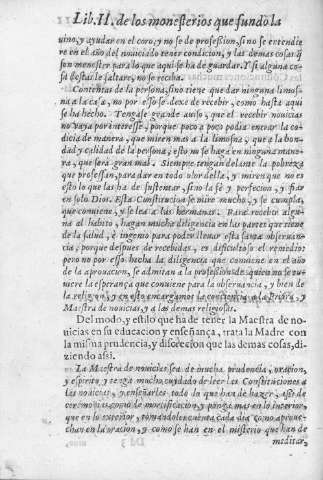 Lib. II. de los monesterios que fundò la
uino, y ayudar en el coro, y no se de profession, si no se entendie
re en el año del nouiciado tener condicion, y las demas cosas q̃
son menester para lo que aqui se ha de guardar. Y si alguna co-
sa destas le faltare, no se reciba.
Contentas de la persona, sino tiene que dar ninguna limos-
na a la casa, no por esso se dexe de recebir, como hasta aqui
se ha hecho. Tengase grande auiso, que el recebir nouicias
no vaya por interesse, porque poco a poco podia entrar la co-
dicia de manera, que miren mas a la limosna, que a la bon-
dad y calidad de la persona, esto no se haga en ninguna mane-
ra, que serà gran mal. Siempre tengan delante la pobreza
que professan, para dar en todo olor della, y miren que no es
esto lo que las ha de sustentar, sino la fè y perfecion, y fiar
en solo Dios. Esta Constitucion se mire mucho, y se cumpla,
que conuiene, y se lea a las hermanas. Para recebir algu-
na al habito, hagan mucha diligencia en las partes que tiene
de la salud, è ingenio para poder lleuar esta santa obseruan-
cia, porque despues de recebidas, es dificultoso el remedio:
pero no por esso hecha la diligencia que conuiene en el año
de la aprouacion, se admitan a la profession de quien no se tu-
uiere la esperança que conuiene para la obseruancia, y bien de
la religion, y en esto encargamos la conciencia a la Priora, y
Maestra de nouicias, y a las demas religiosas.
Del modo, y estilo que ha de tener la Maestra de no-
uicias en su educacion y enseñança, trata la Madre con
la misma prudencia, y discrecion que las demas cosas, di-
ziendo assi.
La Maestra de nouicias sea de mucha prudencia, oracion,
y espiritu y tenga mucho cuydado de leer las Constituciones a
las nouicias, y enseñarles todo lo que han de hazer, assi de
ceremonias como de mortificacion, y ponga mas en lo interior,
que en lo exterior, tomandoles cuenta cada dia como aproue-
chan en la oracion, y como se han en el misterio que han de
meditar,